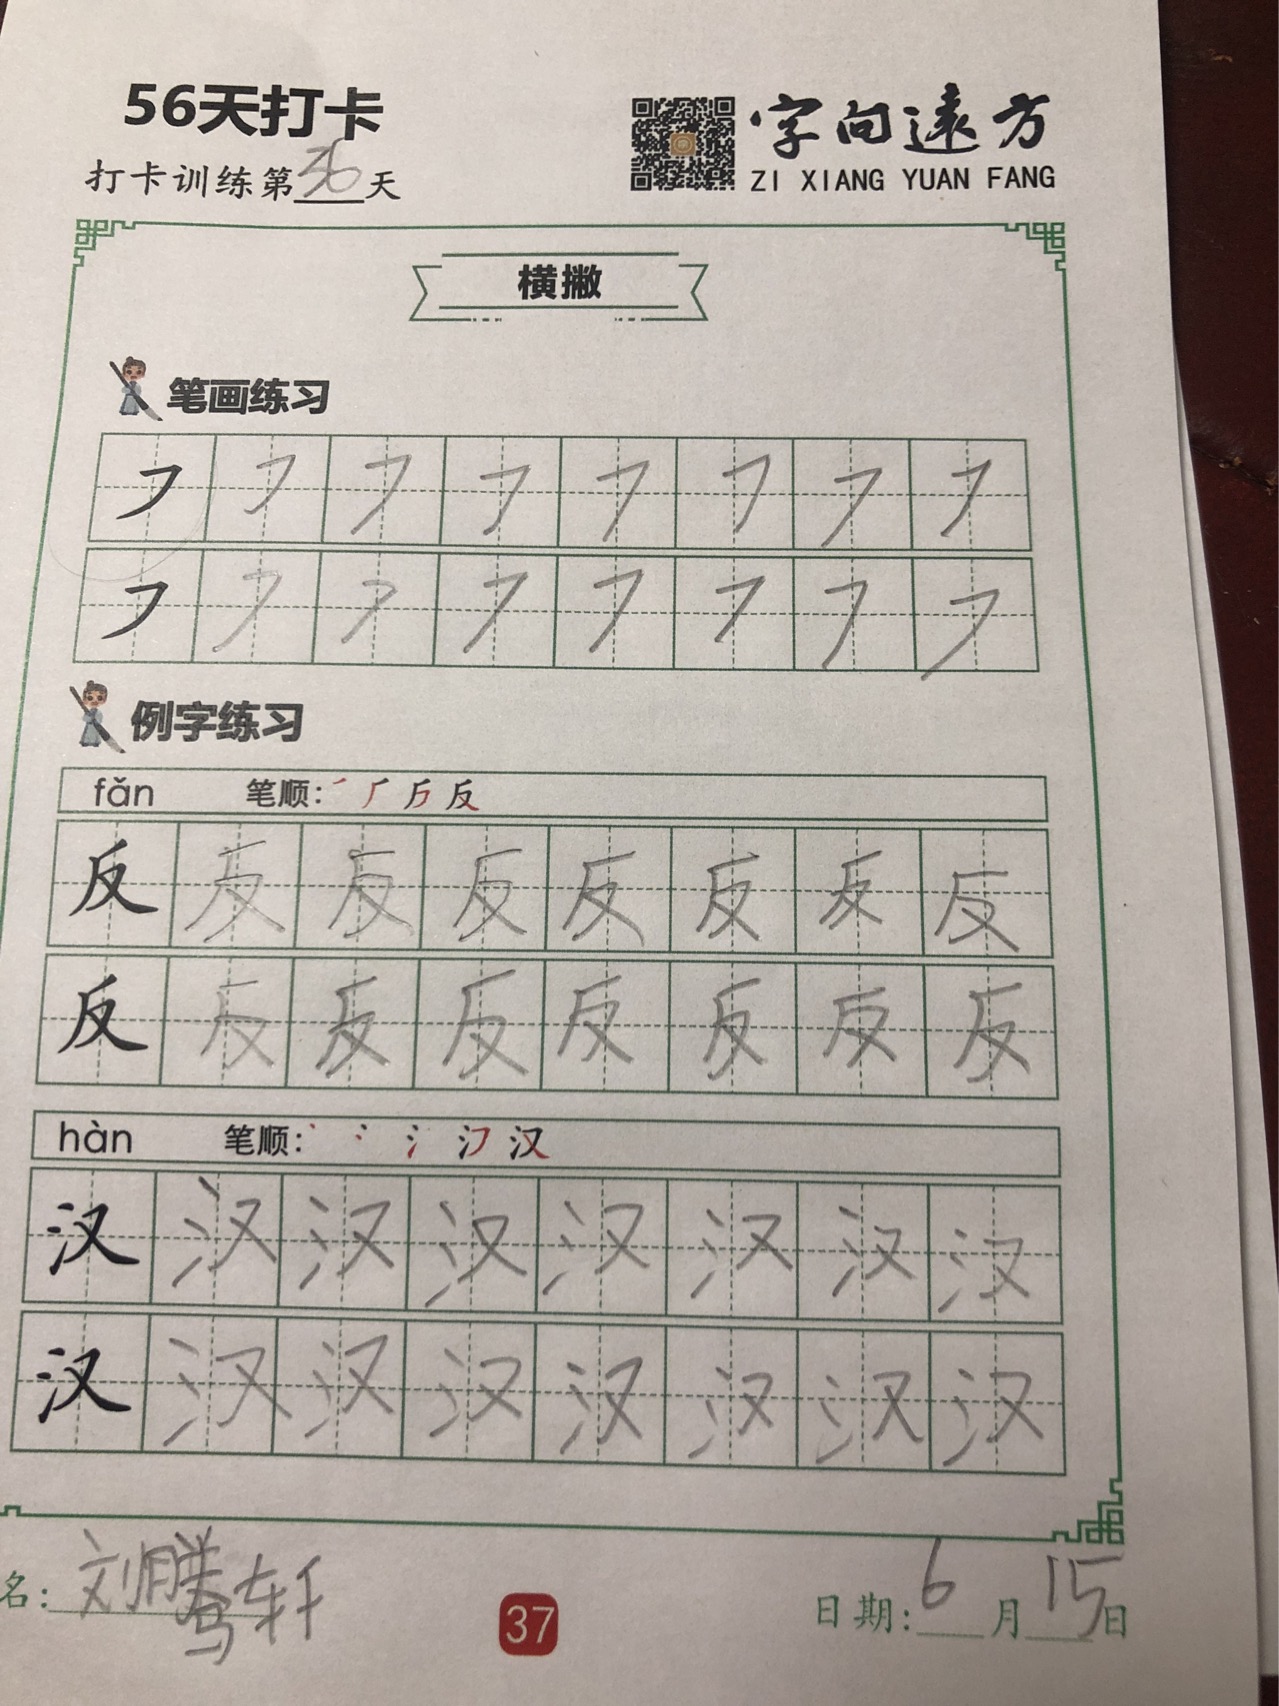 56天打卡
打卡训练第36天
字向遠方
ZI XIANG YUAN FANG
横撇
笔画练习
㇇ ㇇ ㇇ ㇇ ㇇ ㇇ ㇇ ㇇
㇇ ㇇ ㇇ ㇇ ㇇ ㇇ ㇇ ㇇
例字练习
fǎn 笔顺: 反
反 反 反 反 反 反 反 反
反 反 反 反 反 反 反 反
hàn 笔顺: 汉
汉 汉 汉 汉 汉 汉 汉 汉
汉 汉 汉 汉 汉 汉 汉 汉
名: 刘腾轩
37
日期: 6月15日